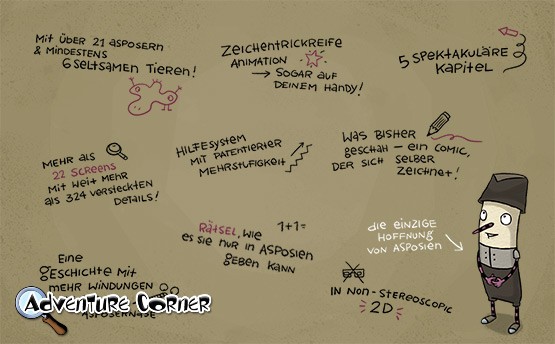 Mit über 21 Asposern
& mindestens
6 seltsamen Tieren!
Zeichentrickreife
Animation
→ sogar auf
deinem Handy!
5 spektakuläre
Kapitel
Mehr als
22 Screens
mit weit mehr
als 324 versteckten
Details!
Hilfesystem
mit patentierter
Mehrstufigkeit
Was bisher
geschah – ein Comic,
der sich selber
zeichnet!
Rätsel, wie
es sie nur in Asposien
geben kann
1+1=
die einzige
Hoffnung
von Asposien
Eine
Geschichte mit
mehr Windungen
Adventure Corner
in Non-Stereoscopic
2D